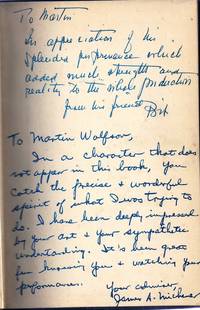 To Martin
In appreciation of his
splendid performance which
added much strength and
reality to the whole production
from his friend
To Martin Wolfson,
In a character that does
not appear in this book, you
catch the precise & wonderful
spirit of what I was trying to
do. I have been deeply impressed
by your art & your sympathetic
understanding. It's been great
fun knowing you & watching your
performance.
Your admirer,
James A. Michener